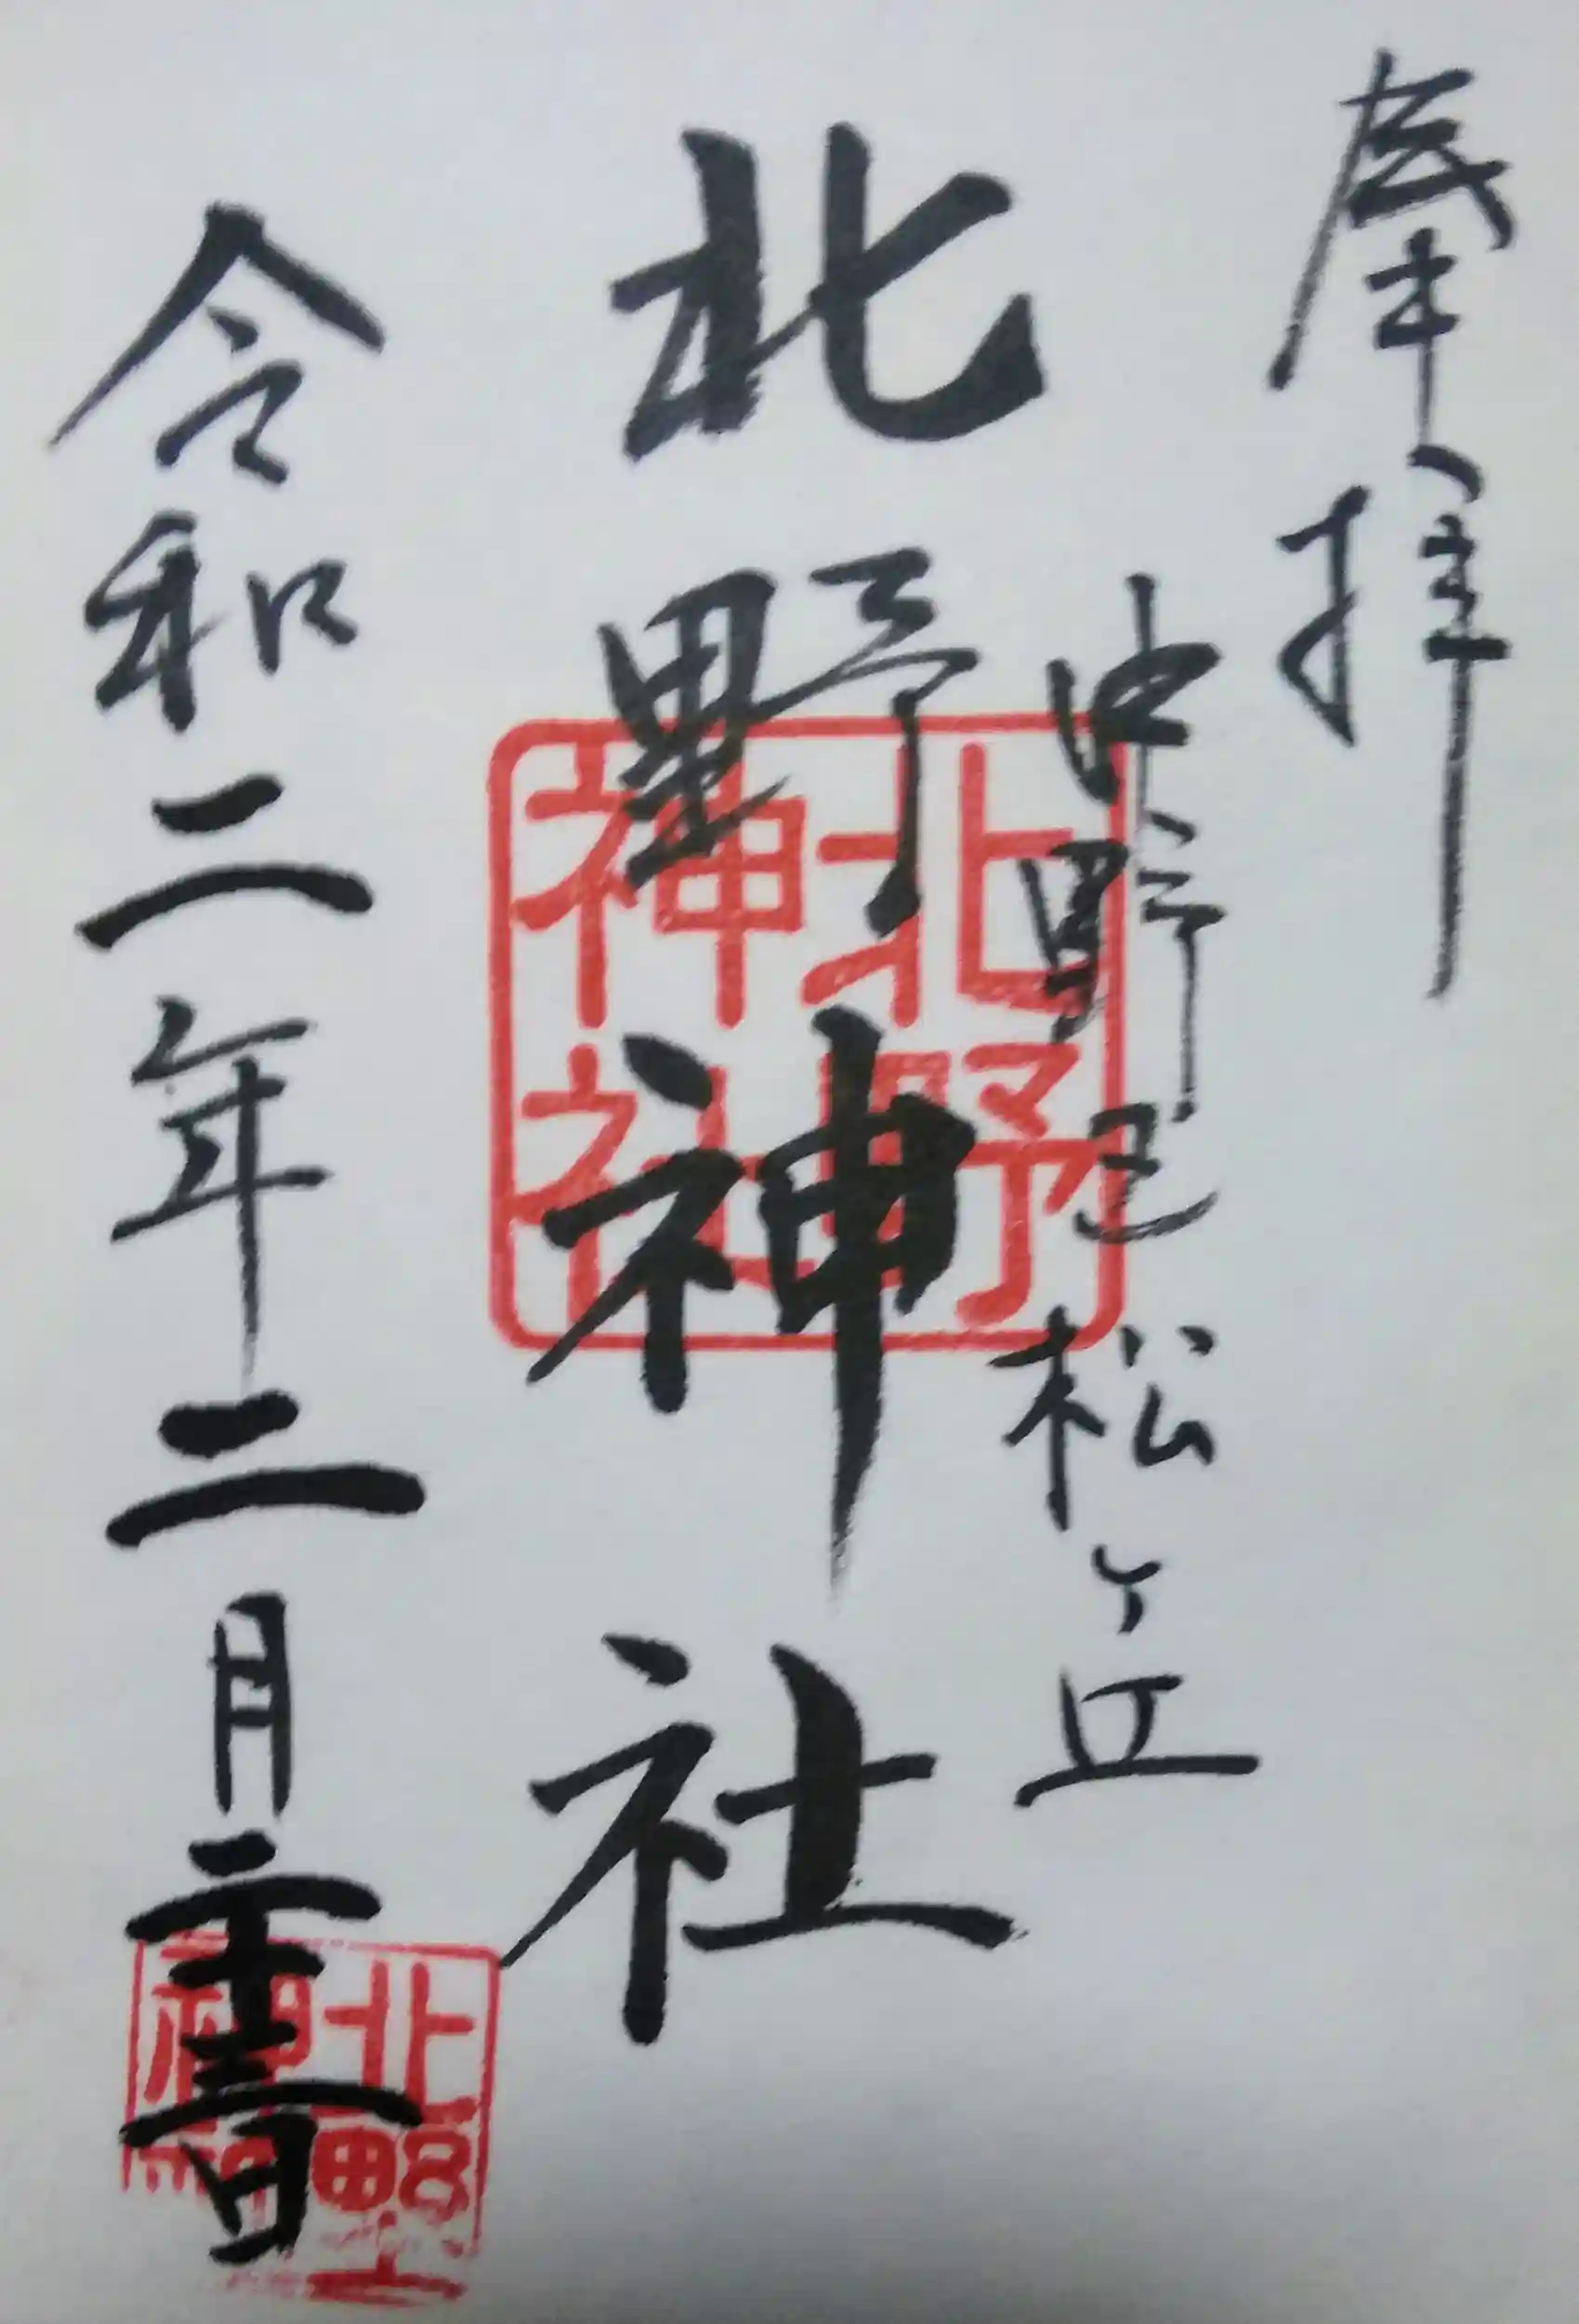 奉拝
中野区松ヶ丘
北野神社
令和二年二月二十三日
北野
神社
北野
神社